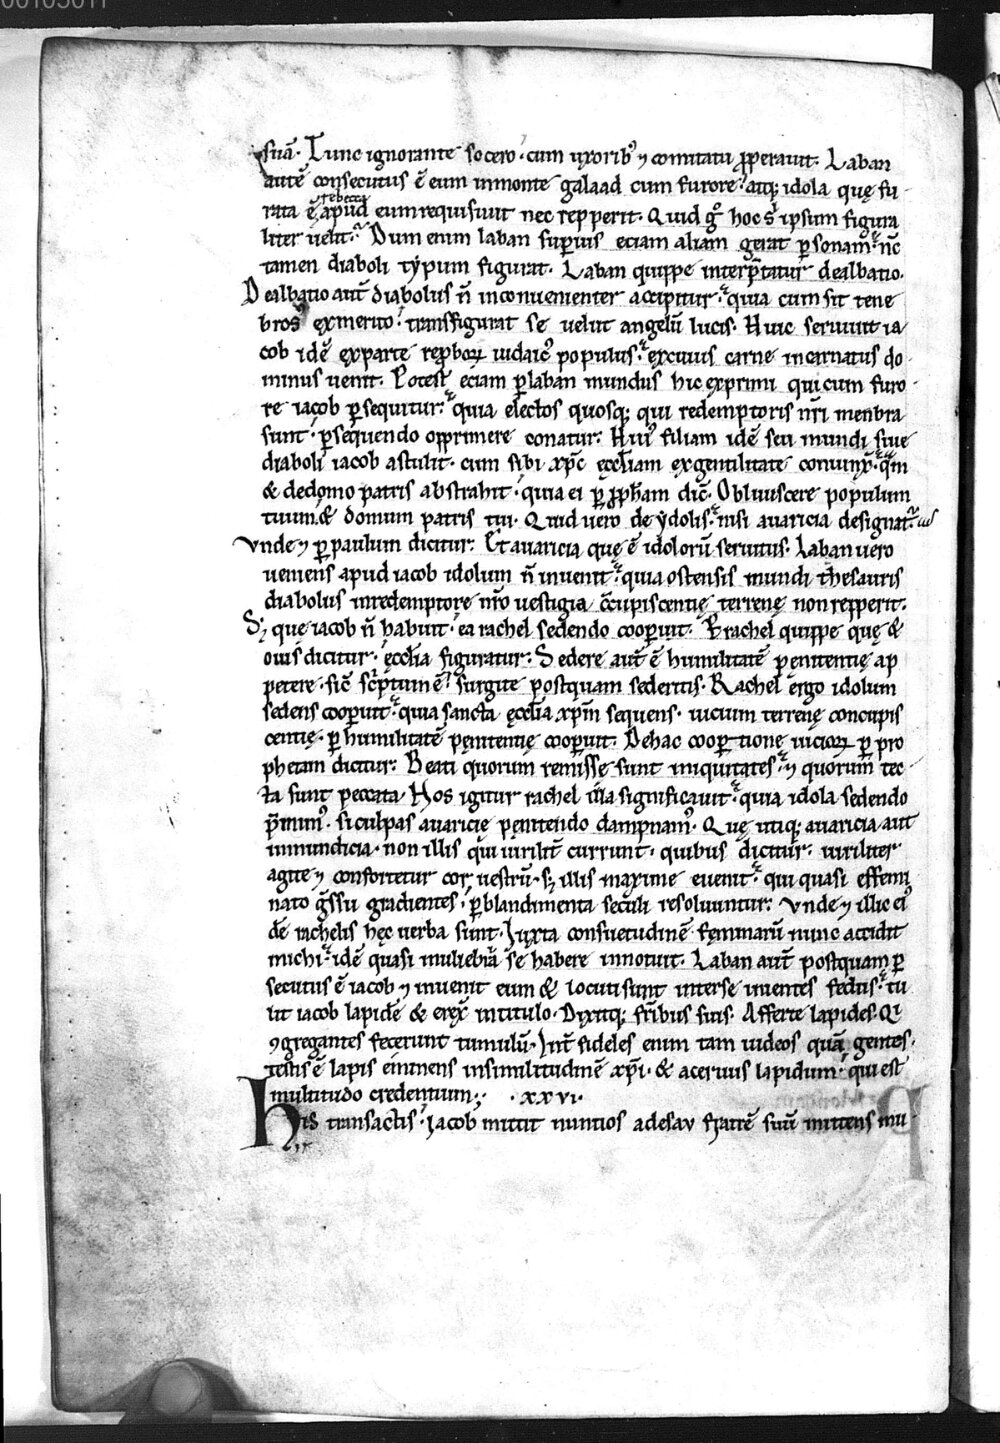 00105011
suā. Tunc ignorante socero. cum uxorib; ⁊ comitatu ꝓperauit. Laban
autē consecutus ē eum inmonte galaad cum furore. atq; idola quę fu
rebecca
rata ē, apud eum requisiuit nec repperit. Quid gͦ hoc s̄ ipsum figura
liter uelit. Dum enim laban superius eciam aliam gerat ꝑsonam. nc̄
tamen diaboli typum figurat. Laban quippe interp̄tatur dealbatio.
Dealbatio aut̄ diabolus n̄ inconuenienter accipitur. quia cum sit tene
brosꝰ ex merito. transfigurat se uelut angelū lucis. Huic seruiuit ia
cob idē ex parte reꝓboꝝ iudaicꝰ populus. ex cuius carne incarnatus do
minus uenit. Potest eciam ꝑ laban mundus hic exprimi qui cum furo
re iacob ꝑsequitur. quia electos quosq; qui redemptoris nr̄i menbra
sunt. ꝑsequendo opprimere conatur. Huiꝰ filiam idē seu mundi siue
diaboli iacob astulit. cum sibi xp̄c ęccl̄iam ex gentilitate coniunx̄. qm̄
& de domo patris abstrahit. quia ei ꝑ ꝓph̄am dic̄. Obliuiscere populum
tuum. & domum patris tui. Quid uero de ydolis. nisi auaricia designat᷑.
vnde ⁊ ꝑ paulum dicitur. Et auaricia quę ē idolorū seruitus. Laban uero
ueniens apud iacob idolum n̄ inuenit. quia ostensis mundi thesauris
diabolus in redemptore nr̄o uestigia c̄cupiscentię terrenę non repperit.
Sꝫ que iacob n̄ habuit. ea rachel sedendo cooperuit. Ꝑ rachel quippe quę &
ouis dicitur. ęccl̄ia figuratur. Sedere aut̄ ē humilitatē penitentię ap
petere. sic̄ scͥptum ē. surgite postquam sederitis. Rachel ergo idolum
sedens cooperuit. quia sancta ęccl̄ia xp̄m sequens. uicium terrenę concupis
centię. ꝑ humilitatē pęnitentię cooperuit. De hac coopertione uicioꝝ ꝑ pro
phetam dicitur. Beati quorum remisse sunt iniquitates. ⁊ quorum tec
ta sunt peccata. Nos igitur rachel illa significauit. quia idola sedendo
p̄mimꝰ. si culpas auaricię pęnitendo dampnamꝰ. Quę utiq; auaricia aut
inmundicia. non illis qui uirilit̄ currunt. quibus dicitur. uiriliter
agite ⁊ confortetur cor uestrū. sꝫ illis maxime euenit. qui quasi effemi
nato gͣssu gradientes. ꝑ blandimenta seculi resoluuntur. vnde ⁊ illic eiꝰ
dē rachelis hęc uerba sunt. Iuxta consuetudinē feminarū nunc accidit
michi. idē quasi muliebria se habere innotuit. Laban aut̄ postquam ꝑ
secutus ē iacob ⁊ inuenit eum & locuti sunt inter se inientes fedus. tu
lit iacob lapidē & erex̄ in titulo. Dixitq; fr̄ibus suis. Afferte lapides. Qi
ꝯgregantes fecerunt tumulū. Int̄ fideles enim tam iudeos quā gentes.
testis ē lapis eminens in similitudinē xp̄i. & aceruus lapidum. qui est
multitudo credentium. .xxvi.
His transactis. Iacob mittit nuntios ad esav fratrē suū mittens mu